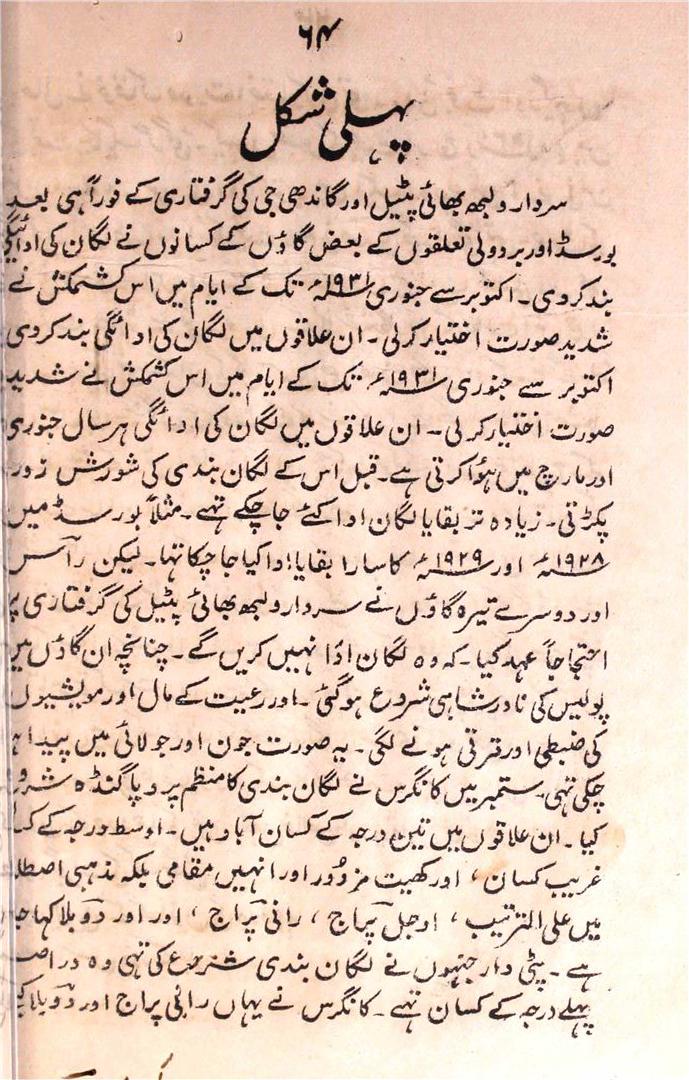 ۶۴
پہلی شکل
سردار ولبھ بھائی پٹیل اور گاندھی جی کی گرفتاری کے فوراً ہی بعد
بورسڈ اور بردولی تعلقوں کے بعض گاؤں کے کسانوں نے لگان کی ادائیگی
بند کر دی۔ اکتوبر سے جنوری ۱۹۳۱ء تک کے ایام میں اس کشمکش نے
شدید صورت اختیار کر لی۔ ان علاقوں میں لگان کی ادائگی بند کر دی
اکتوبر سے جنوری ۱۹۳۱ء تک کے ایام میں اس کشمکش نے شدید
صورت اختیار کر لی۔ ان علاقوں میں لگان کی ادائگی ہر سال جنوری
اور مارچ میں ہؤا کرتی ہے۔ قبل اس کے لگان بندی کی شورش زور
پکڑتی۔ زیادہ تر بقایا لگان ادا کئے جا چکے تہے۔ مثلاً بورسڈ میں
۱۹۲۸ء اور ۱۹۲۹ء کا سارا بقایا ادا کیا جا چکا تہا۔ لیکن راس
اور دوسرے تیرہ گاؤں نے سردار ولبھ بھائی پٹیل کی گرفتاری پر
احتجاجاً عہد کیا۔ کہ وہ لگان ادا نہیں کریں گے۔ چنانچہ ان گاؤں میں
پولیس کی نادر شاہی شروع ہو گئی۔ اور رعیت کے مال اور مویشیوں
کی ضبطی اور قرقی ہونے لگی۔ یہ صورت جون اور جولائی میں پیدا ہو
چکی تہی۔ ستمبر میں کانگرس نے لگان بندی کا منظم پروپاگنڈہ شروع
کیا۔ ان علاقوں میں تین درجہ کے کسان آباد ہیں۔ اوسط درجہ کے
غریب کسان، اور کھیت مزدور اور انہیں مقامی بلکہ مذہبی
میں علی الترتیب، اوجل پراج، رانی پراج، اور اور دوبلا کہا
ہے۔ پٹی دار جنہوں نے لگان بندی شروع کی تہی وہ دراصل
پہلے درجہ کے کسان تہے۔ کانگرس نے یہاں رانی پراج اور دوبلا